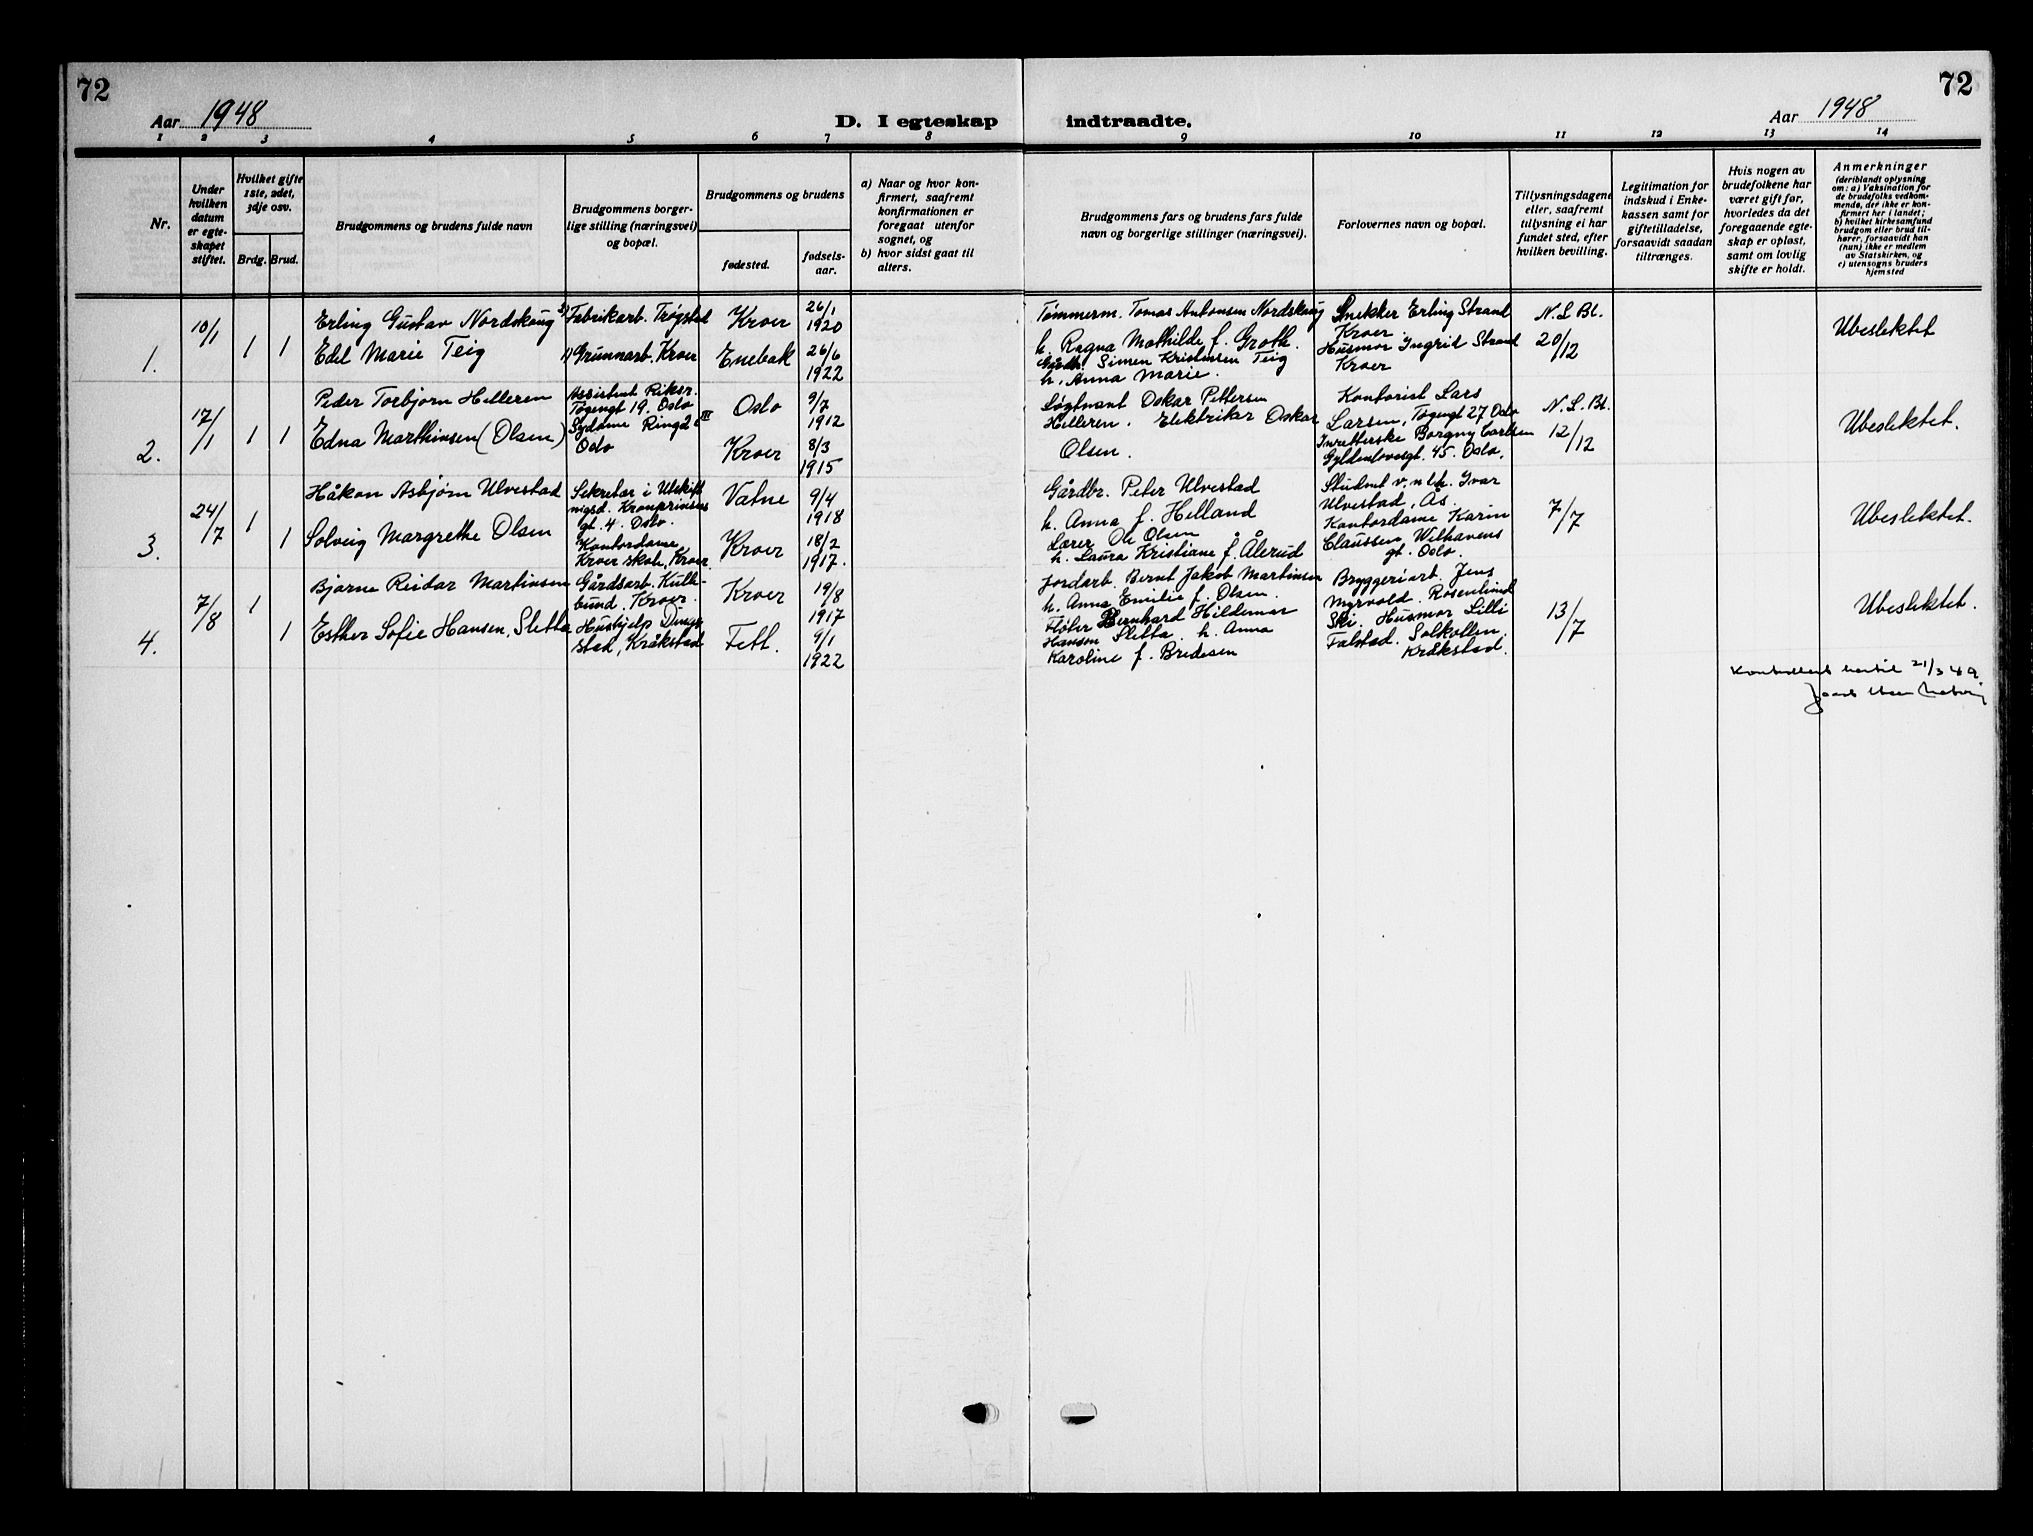 72
72
Aar 1948
D. I egteskap indtraadte.
Aar 1948
1 2 3 4 5 6 7 8 9 10 11 12 13 14
Nr.
Under
hvilken
datum
er egte-
skapet
stiftet.
Hvilket gifte
1ste, 2det,
3dje osv.
Brdg. Brud.
Brudgommens og brudens fulde navn
Brudgommens borger-
lige stilling (næringsvei)
og bopæl.
Brudgommens og brudens
fødested.
fødsels-
aar.
a) Naar og hvor kon-
firmert, saafremt
konfirmationen er
foregaat utenfor
sognet, og
b) hvor sidst gaat til
alters.
Brudgommens fars og brudens fars fulde
navn og borgerlige stillinger (næringsvei).
Forlovernes navn og bopæl.
Tillysningsdagene
eller, saafremt
tillysning ei har
fundet sted, efter
hvilken bevilling.
Legitimation for
indskud i Enke-
kassen samt for
giftetilladelse,
forsaavidt saadan
tiltrænges.
Hvis nogen av
brudefolkene har
været gift før,
hvorledes da det
foregaaende egte-
skap er opløst,
samt om lovlig
skifte er holdt.
Anmerkninger
(deriblandt oplysning
om: a) Vaksination for
de brudefolks vedkom-
mende, der ikke er kon-
firmert her i landet;
b) hvilket kirkesamfund
brudgom eller brud til-
hører, forsaavidt han
(hun) ikke er medlem
av Statskirken, og
c) utensogns bruders
hjemsted
1.
10/1
1 1
Erling Gustav Nordskaug
Edel Marie Teig
Fabrikarb. Trøgstad
Grunnarb. Kroer
Kroer
Enebak
26/1
1920
26/6
1922
Tømmerm. Tomas Antonsen Nordskaug
h. Ragna Mathilde f. Groth.
Gårdbr. Simen Kristinsen Teig
h. Anna Marie.
Snekker Erling Strand
Kroer.
Husmor Ingrid Strand
Kroer
N. L Bl.
20/12
Ubeslektet
2.
17/1
1 1
Peder Torbjørn Helleren
Edna Marthinsen (Olsen)
Assistent Riksr.
Tøyengt 19. Oslo
Sydame Ringg 2 III
Oslo
Oslo
Kroer
9/7
1912
8/3
1915
Løytnant Oskar Pettersen
Helleren. Elektriker Oskar
Olsen.
Kontorist Lars
Larsen, Tøyengt 27 Oslo
Innretterske Borgny Carlsen
Gyldenlovesgt. 45. Oslo.
N. L. Bl.
12/12
Ubeslektet.
3.
24/7
1 1
Håkon Asbjørn Ulvestad
Solveig Margrethe Olsen
Sekretær i Utskift
nigsd. Kronprinsens
gt. 4. Oslo.
Kontordame
Kroer skole, Kroer.
Vatne
Kroer
9/4
1918
18/2
1917.
Gårdbr. Peter Ulvestad
h. Anna f. Helland
Lærer Ole Olsen
h. Laura Kristiane f. Ålerud
Student v. n l h. Ivar
Ulvestad, Ås.
Kontordame Karin
Claussen Welhavens
gt. Oslo.
7/7
Ubeslektet.
4.
7/8
1 1
Bjarne Reidar Martinsen
Esther Sofie Hansen, Sletta
Gårdsarb. Kulle-
bund. Kroer.
Hushjelp Ding-
stad, Kråkstad
Kroer
Fett.
19/8
1917
9/1
1922
Jordarb. Bernt Jakob Martinsen
h. Anna Emilie f. Olsen.
Fløter Bernhard Hildemar
Hansen Sletta. h. Anna
Karoline f. Bredesen
Bryggeriarb. Jens
Myrvold. Rosenlund
Ski. Husmor Lilli
Falstad. Solkollen.
Kråkstad.
13/7
Ubeslektet.
Kontrollert hertil 21/3 49.